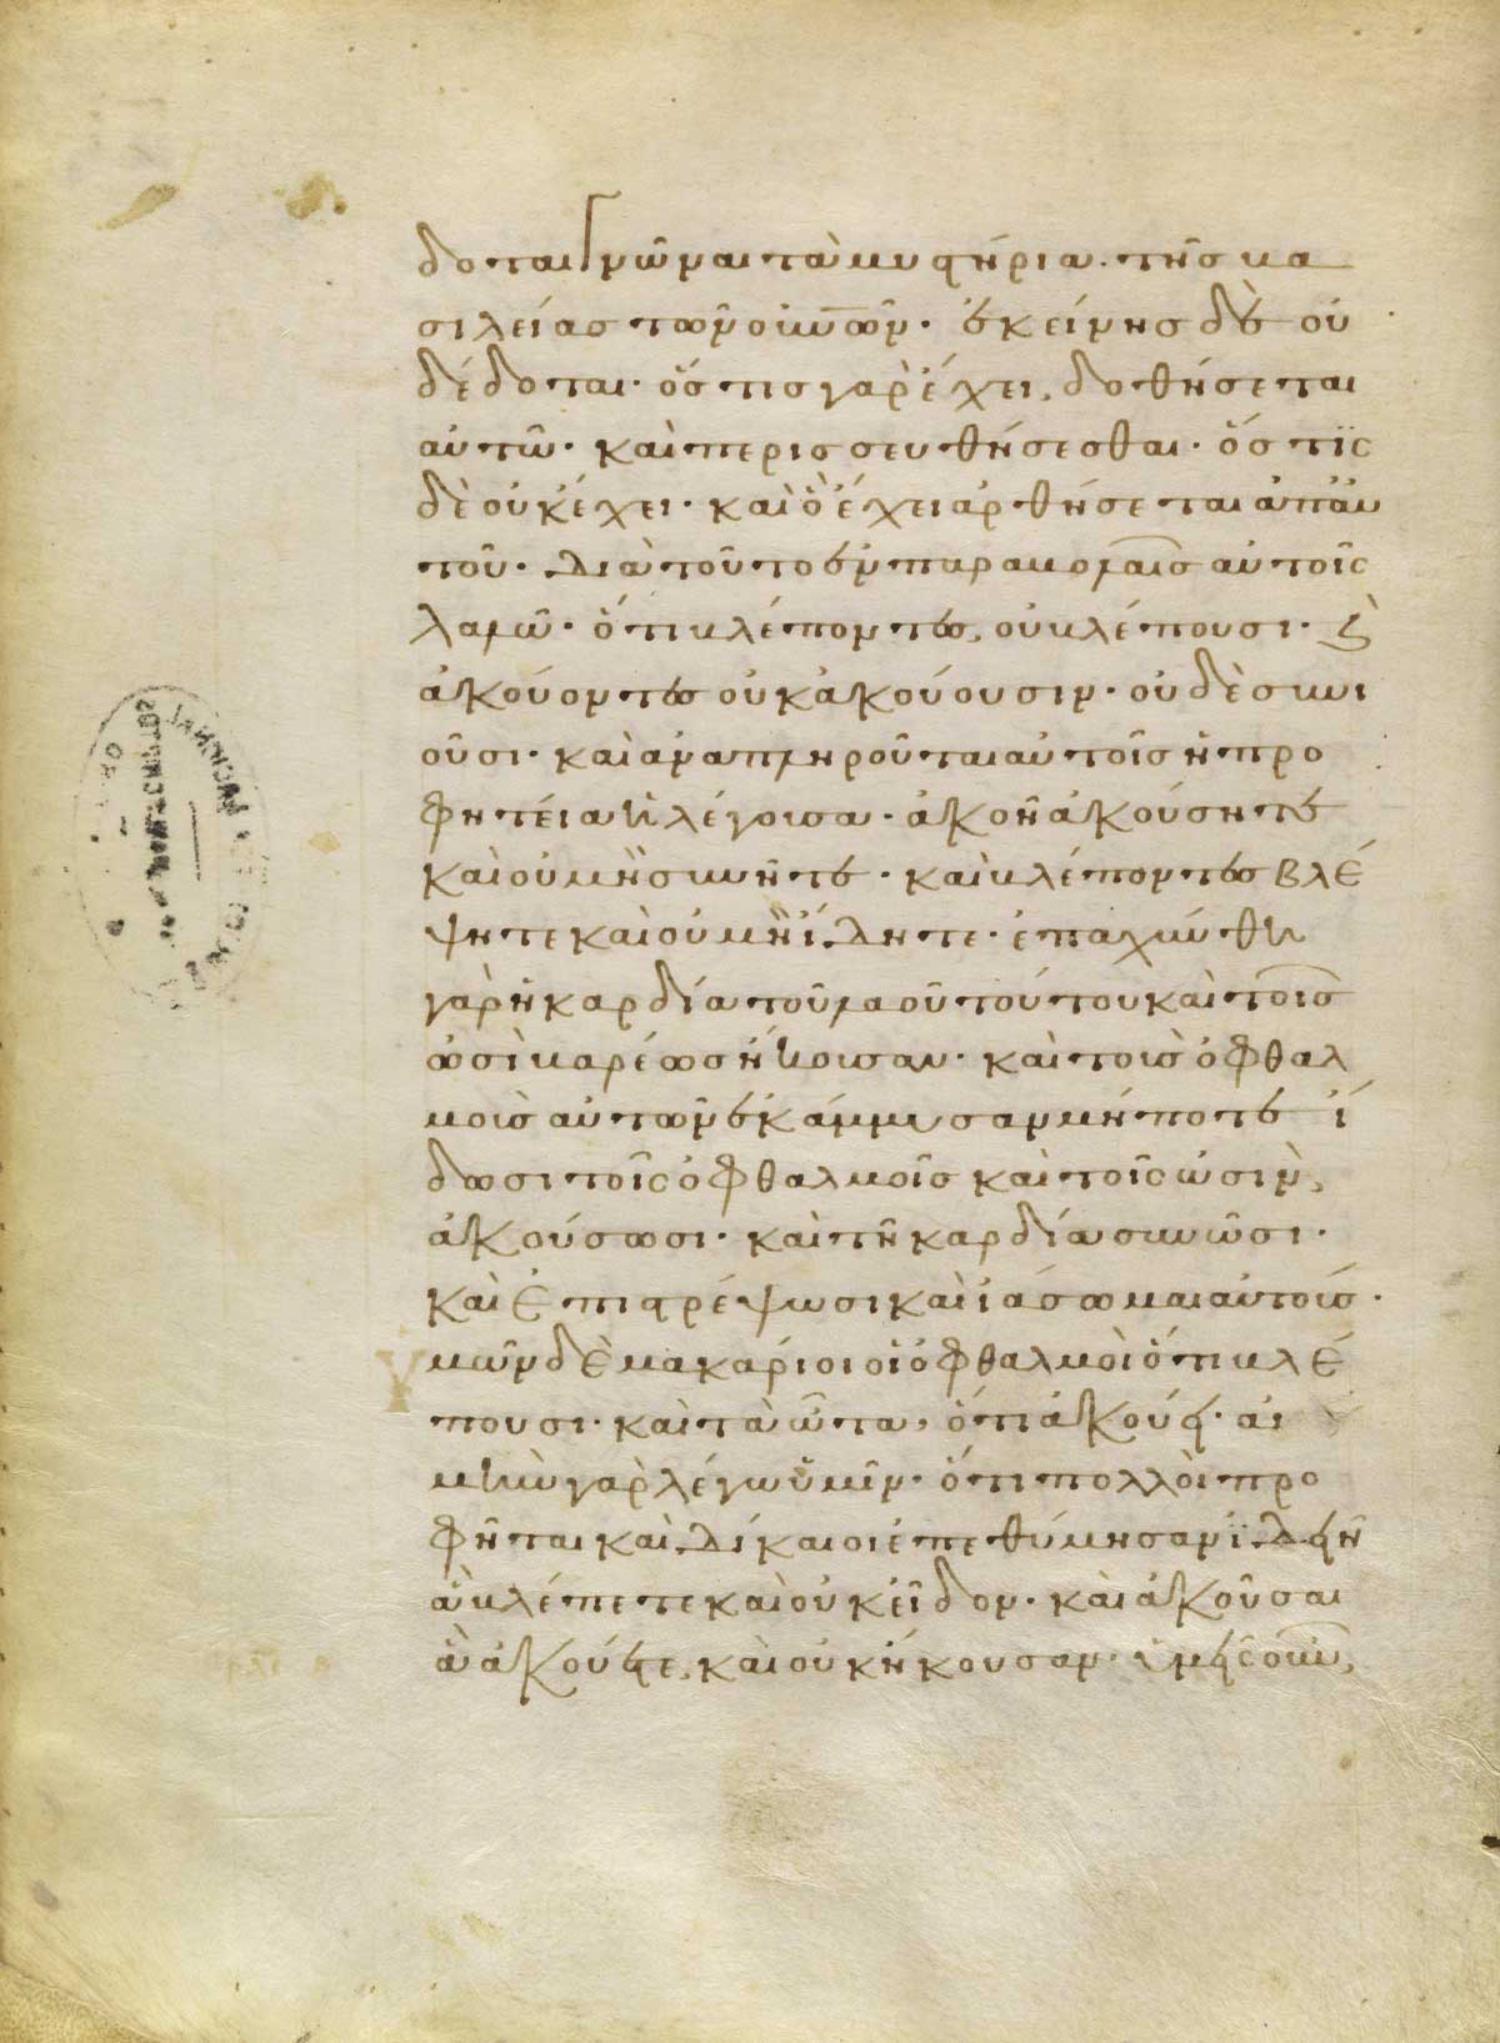 δοται γνῶναι τὰ μυστήρια τῆς βα
σιλείας τῶν οὐνῶν· ἐκείνης δὲ οὐ
δέδοται· ὅστις γὰρ ἔχει, δοθήσεται
αὐτῶ· καὶ περισσευθήσεσθαι· ὅστϊς
δὲ οὐκ ἔχει· καὶ ὃ ἔχει ἀρθήσεται ἀπ αὐ
τοῦ· Διὰ τοῦτο ἐν παραβολαῖς αὐτοῖς
λαλῶ· ὅτι βλέποντες, οὐ βλέπουσι· ϗ
ἀκούοντες οὐκ ἀκούουσιν· οὐδὲ συνι
οῦσι· καὶ ἀναπληροῦται αὐτοῖς ἡ προ
φητεία ἡ λέγουσα· ἀκοῆ ἀκούσητε
καὶ οὐ μὴ συνῆτε· καὶ βλέποντες βλέ
ψητε καὶ οὐ μὴ ἴδητε· ἐπαχύνθη
γὰρ ἡ καρδία τοῦ λαοῦ τούτου καὶ τοῖς
ὠσὶ βαρέως ἤκουσαν· καὶ τοὺς ὀφθαλ
μοὺς αὐτῶν ἐκάμμυσαν μήποτε ἴ
δωσι τοῖς ὀφθαλμοῖς καὶ τοῖς ὠσὶν,
ἀκούσωσι· καὶ τῆ καρδία συνῶσι·
καὶ ἐπιστρέψωσι καὶ ἰάσωμαι αὐτούς·
Υμῶν δὲ μακάριοι οἱ ὀφθαλμοὶ ὅτι βλέ
πουσι· καὶ τὰ ὦτα, ὅτι ἀκούει· ἀ
μὴν γὰρ λέγω ὑμῖν· ὅτι πολλοὶ προ
φῆται καὶ Δίκαιοι ἐπεθύμησαν ϊδεῖν
ἃ βλέπετε καὶ οὐκ εῖδον· καὶ ἀκοῦσαι
ἃ ἀκούετε, καὶ οὐκ ἤκουσαν· ὑμεῖς οὖν,